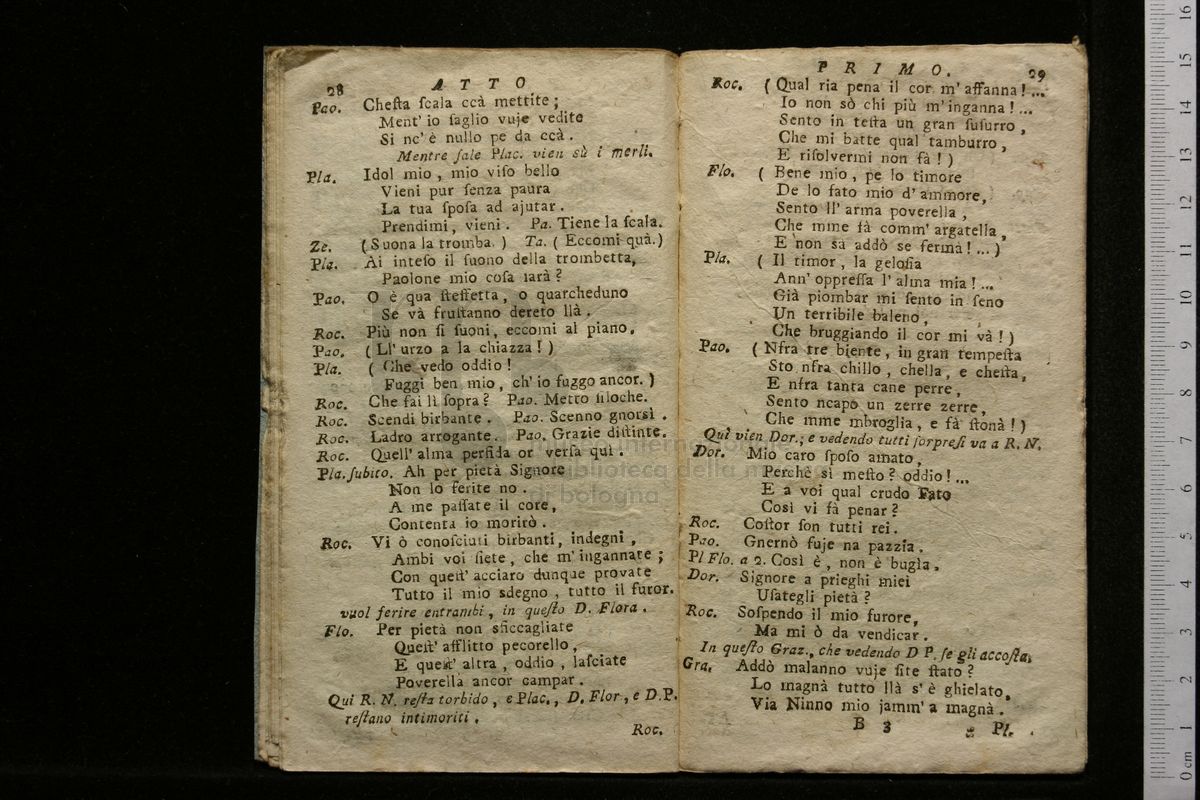 28 ATTO
Pao. Cheſta ſcala ccà mettite;
Ment' io ſaglio vuje vedite
Si nc' è nullo pe da ccà.
Mentre ſale Plac. vien sù i merli.
Pla. Idol mio, mio viſo bello
Vieni pur ſenza paura
La tua ſpoſa ad ajutar.
Prendimi, vieni. Pa. Tiene la ſcala.
Ze. (Suona la tromba.) Ta. (Eccomi quà.)
Pla. Ai inteſo il ſuono della trombetta,
Paolone mio coſa ſarà?
Pao. O è qua ſteffetta, o quarcheduno
Se và fruſtanno dereto llà.
Roc. Più non ſi ſuoni, eccomi al piano.
Pao. (Ll' urzo a la chiazza!)
Pla. (Che vedo oddio!
Fuggi ben mio, ch' io fuggo ancor.)
Roc. Che fai lì ſopra? Pao. Metto ſiloche.
Roc. Scendi birbante. Pao. Scenno gnorsì.
Roc. Ladro arrogante. Pao. Grazie diſtinte.
Roc. Quell' alma perfida or verſa quì.
Pla. ſubito. Ah per pietà Signore
Non lo ferite no.
A me paſſate il core,
Contenta io morirò.
Roc. Vi ò conoſciuti birbanti, indegni,
Ambi voi ſiete, che m' ingannate;
Con queſt' acciaro dunque provate
Tutto il mio sdegno, tutto il furor.
vuol ferire entrambi, in queſto D. Flora.
Flo. Per pietà non sficcagliate
Queſt' afflitto pecorello,
E queſt' altra, oddio, laſciate
Poverella ancor campar.
Qui R. N. reſta torbido, e Plac., D. Flor., e D.P.
reſtano intimoriti.
Roc.
PRIMO. 29
Roc. (Qual ria pena il cor m' affanna!...
Io non sò chi più m' inganna!...
Sento in teſta un gran ſuſurro,
Che mi batte qual tamburro,
E riſolvermi non ſà!)
Flo. (Bene mio, pe lo timore
De lo fato mio d' ammore,
Sento ll' arma poverella,
Che mme fà comm' argatella,
E non sà addò se ferma!...)
Pla. (Il timor, la geloſia
Ann' oppreſſa l' alma mia!...
Già piombar mi ſento in ſeno
Un terribile baleno,
Che bruggiando il cor mi và!)
Pao. (Nfra tre biente, in gran tempeſta
Sto nfra chillo, chella, e cheſta,
E nfra tanta cane perre,
Sento ncapo un zerre zerre,
Che mme mbroglia, e fà ſtonà!)
Quì vien Dor.; e vedendo tutti ſorpreſi va a R. N.
Dor. Mio caro ſpoſo amato,
Perchè sì meſto? oddio!...
E a voi qual crudo Fato
Così vi fà penar?
Roc. Coſtor ſon tutti rei.
Pao. Gnernò fuje na pazzìa.
Pl Flo. a 2. Così è, non è bugìa,
Dor. Signore a prieghi miei
Uſategli pietà?
Roc. Soſpendo il mio furore,
Ma mi ò da vendicar.
In queſto Graz., che vedendo D P. ſe gli accoſta,
Gra. Addò malanno vuje ſite ſtato?
Lo magnà tutto llà s' è ghielato,
Via Ninno mio jamm' a magnà.
B 3 Pl.
museo internazionale
e biblioteca della musica
di bologna
0 cm 1 2 3 4 5 6 7 8 9 10 11 12 13 14 15 16